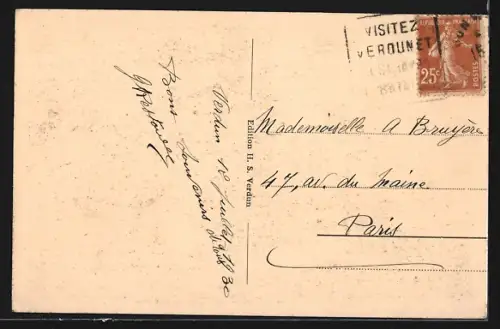 VISITEZ
VERDUNET
REPUBLIQUE FRANÇAISE
25c
POSTES
Verdun 12 Juillet 1930
Bons
Souvenirs
Edition H. S. Verdun
Mademoiselle A Bruyère
47, av. du Maine
Paris